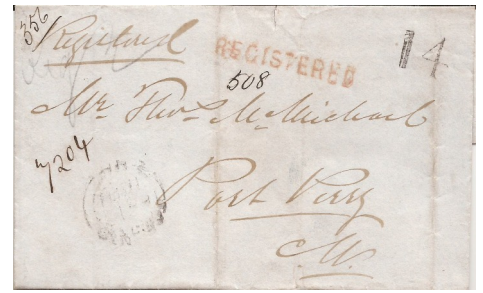 356
Registered
REGISTERED
14
508
Mr. Thos McMichael
7204
Port Perry
C.W.